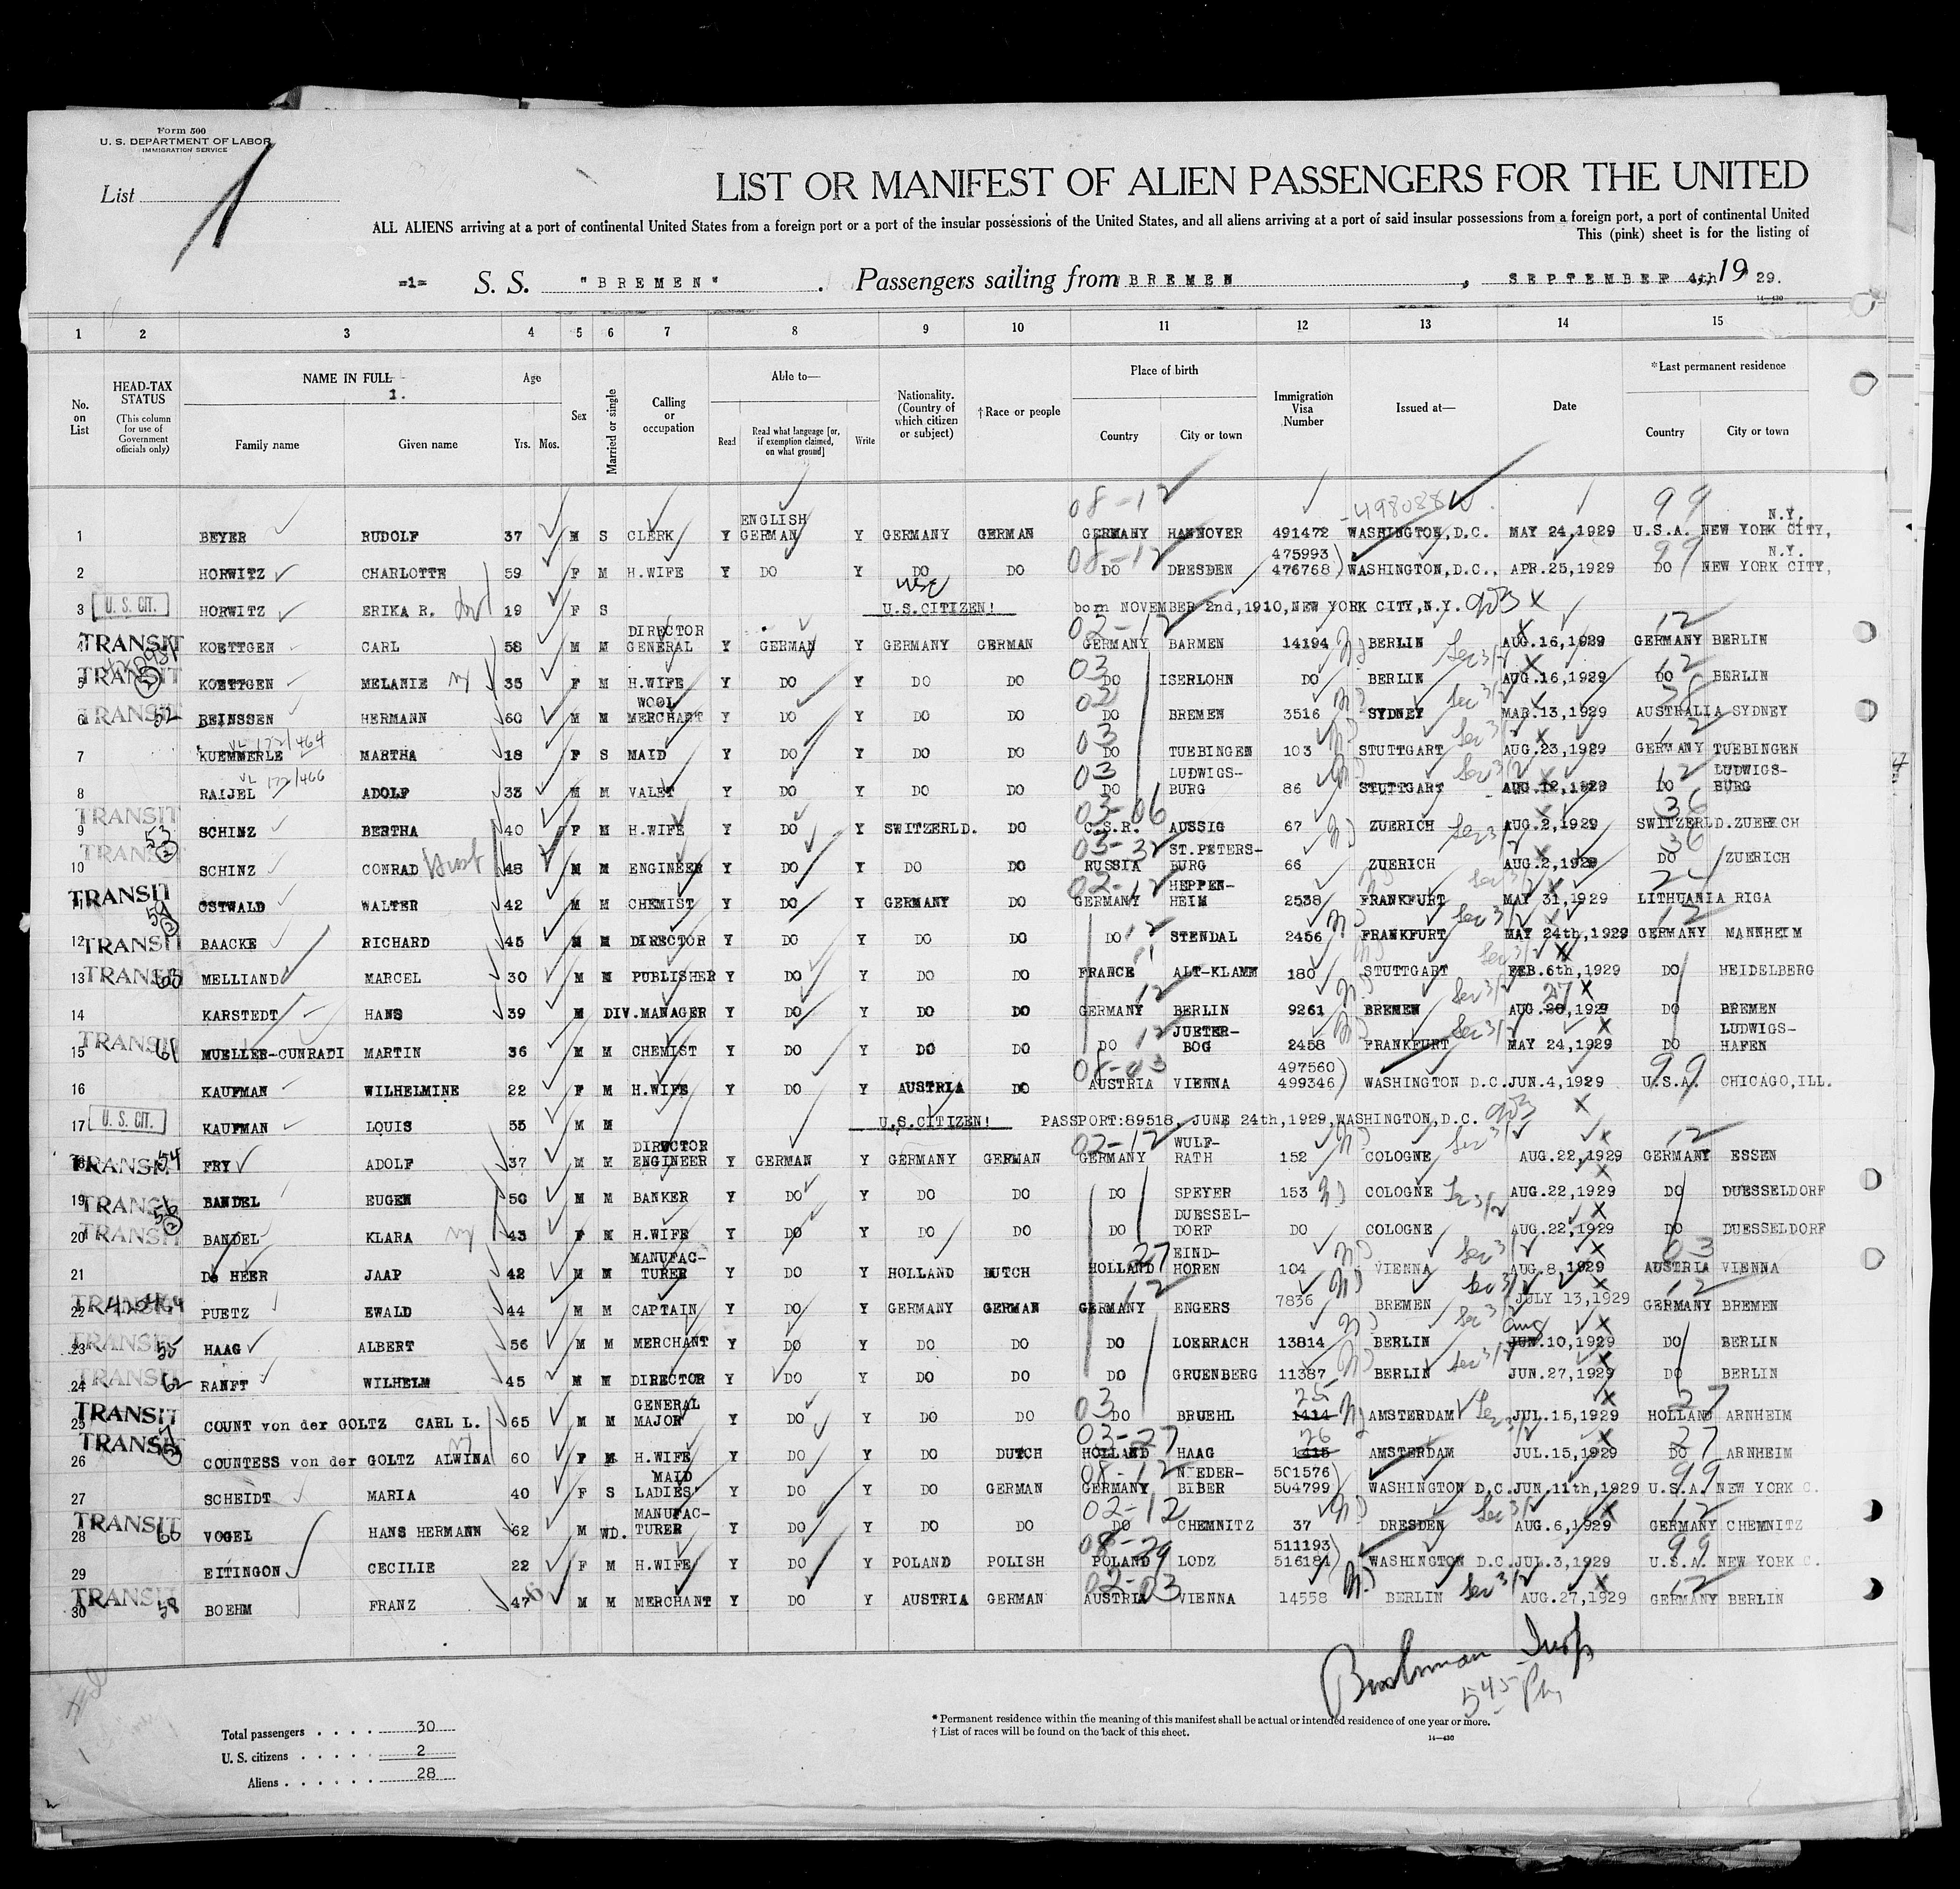 Form 500
U. S. DEPARTMENT OF LABOR
IMMIGRATION SERVICE
List 1
LIST OR MANIFEST OF ALIEN PASSENGERS FOR THE UNITED
ALL ALIENS arriving at a port of continental United States from a foreign port or a port of the insular possessions of the United States, and all aliens arriving at a port of said insular possessions from a foreign port, a port of continental United
This (pink) sheet is for the listing of
=1= S. S. "BREMEN" . Passengers sailing from BREMEN , SEPTEMBER 4th, 1929.
14—430
1 2 3 4 5 6 7 8 9 10 11 12 13 14 15
No. on List
HEAD-TAX STATUS (This column for use of Government officials only)
NAME IN FULL 1.
Family name Given name
Age Yrs. Mos.
Sex
Married or single
Calling or occupation
Able to— Read Read what language [or, if exemption claimed, on what ground] Write
Nationality. (Country of which citizen or subject)
† Race or people
Place of birth Country City or town
Immigration Visa Number
Issued at—
Date
* Last permanent residence Country City or town
1 BEYER RUDOLF 37 M S CLERK Y ENGLISH GERMAN Y GERMANY GERMAN 08-12 GERMANY HANNOVER 491472 498088 WASHINGTON,D.C. MAY 24,1929 99 U.S.A. NEW YORK CITY, N.Y.
2 HORWITZ CHARLOTTE 59 F M H.WIFE Y DO Y DO DO 08-12 DO DRESDEN 475993 476768) WASHINGTON,D.C., APR.25,1929 99 DO NEW YORK CITY, N.Y.
3 U. S. CIT. HORWITZ ERIKA R. 19 F S U.S.CITIZEN! born NOVEMBER 2nd,1910,NEW YORK CITY,N.Y.
4 TRANSIT KOETTGEN CARL 58 M M DIRECTOR GENERAL Y GERMAN Y GERMANY GERMAN 02-12 GERMANY BARMEN 14194 BERLIN Sec 3/2 AUG.16,1929 12 GERMANY BERLIN
5 TRANSIT KOETTGEN MELANIE 35 F M H.WIFE Y DO Y DO DO 03 DO ISERLOHN DO BERLIN AUG.16,1929 12 DO BERLIN
6 TRANSIT 52 BEINSSEN HERMANN 60 M M WOOL MERCHANT Y DO Y DO DO 02 DO BREMEN 3516 SYDNEY Sec 3/2 MAR.13,1929 AUSTRALIA SYDNEY
7 VL 172/464 KUEMMERLE MARTHA 18 F S MAID Y DO Y DO DO 03 DO TUEBINGEN 103 STUTTGART Sec 3/2 AUG.23,1929 12 GERMANY TUEBINGEN
8 VL 172/466 RAIJEL ADOLF 33 M M VALET Y DO Y DO DO 03 DO LUDWIGS-BURG 86 STUTTGART Sec 3/2 AUG.12,1929 12 DO LUDWIGS-BURG
9 TRANSIT 53 2 SCHINZ BERTHA 40 F M H.WIFE Y DO Y SWITZERLD. DO 03-06 C.S.R. AUSSIG 67 ZUERICH Sec 3/2 AUG.2,1929 36 SWITZERLD. ZUERICH
10 TRANSIT SCHINZ CONRAD 48 M M ENGINEER Y DO Y DO DO 03-32 RUSSIA ST.PETERS-BURG 66 ZUERICH AUG.2,1929 36 DO ZUERICH
11 TRANSIT OSTWALD WALTER 42 M M CHEMIST Y DO Y GERMANY DO 02-12 GERMANY HEPPEN-HEIM 2538 FRANKFURT Sec 3/2 MAY 31,1929 LITHUANIA RIGA
12 TRANSIT BAACKE RICHARD 45 M M DIRECTOR Y DO Y DO DO DO 12 STENDAL 2456 FRANKFURT Sec 3/2 MAY 24th,1929 12 GERMANY MANNHEIM
13 TRANSIT 63 MELLIAND MARCEL 30 M M PUBLISHER Y DO Y DO DO 11 FRANCE ALT-KLAMM 180 STUTTGART Sec 3/2 FEB.6th,1929 DO HEIDELBERG
14 KARSTEDT HANS 39 M DIV.MANAGER Y DO Y DO DO 12 GERMANY BERLIN 9261 BREMEN Sec 3/2 27 AUG.20,1929 DO BREMEN
15 TRANSIT 61 MUELLER-CUNRADI MARTIN 36 M M CHEMIST Y DO Y DO DO DO 12 JUETER-BOG 2458 FRANKFURT Sec 3/2 MAY 24,1929 DO LUDWIGS-HAFEN
16 KAUFMAN WILHELMINE 22 F M H.WIFE Y DO Y AUSTRIA DO 08-03 AUSTRIA VIENNA 497560 499346) WASHINGTON D.C. JUN.4,1929 99 U.S.A. CHICAGO,ILL.
17 U. S. CIT. KAUFMAN LOUIS 35 M M U.S.CITIZEN! PASSPORT:89518, JUNE 24th,1929,WASHINGTON,D.C.
18 TRANSIT 54 FRY ADOLF 37 M M DIRECTOR ENGINEER Y GERMAN Y GERMANY GERMAN 02-12 GERMANY WULF-RATH 152 COLOGNE Sec 3/2 AUG.22,1929 12 GERMANY ESSEN
19 TRANSIT 56 2 BANDEL EUGEN 50 M M BANKER Y DO Y DO DO DO SPEYER 153 COLOGNE Sec 3/2 AUG.22,1929 DO DUESSELDORF
20 TRANSIT BANDEL KLARA 43 F M H.WIFE Y DO Y DO DO DO DUESSEL-DORF DO COLOGNE AUG.22,1929 DO DUESSELDORF
21 De HEER JAAP 42 M M MANUFAC-TURER Y DO Y HOLLAND DUTCH 27 HOLLAND EIND-HOREN 104 VIENNA Sec 3/2 AUG.8,1929 03 AUSTRIA VIENNA
22 TRANSIT PUETZ EWALD 44 M M CAPTAIN Y DO Y GERMANY GERMAN 12 GERMANY ENGERS 7836 BREMEN Sec 3/2 JULY 13,1929 12 GERMANY BREMEN
23 TRANSIT 55 HAAG ALBERT 56 M M MERCHANT Y DO Y DO DO DO LOERRACH 13814 BERLIN Sec 3/2 Aug JUN.10,1929 DO BERLIN
24 TRANSIT 62 RANFT WILHELM 45 M M DIRECTOR Y DO Y DO DO DO GRUENBERG 11387 BERLIN Sec 3/2 JUN.27,1929 DO BERLIN
25 TRANSIT COUNT von der GOLTZ CARL L. 65 M M GENERAL MAJOR Y DO Y DO DO 03 DO BRUEHL 25 1414 AMSTERDAM JUL.15,1929 27 HOLLAND ARNHEIM
26 TRANSIT COUNTESS von der GOLTZ ALWINA 60 F M H.WIFE Y DO Y DO DUTCH 03-27 HOLLAND HAAG 26 1415 AMSTERDAM JUL.15,1929 27 DO ARNHEIM
27 SCHEIDT MARIA 40 F S MAID LADIES' Y DO Y DO GERMAN 08-12 GERMANY NIEDER-BIBER 501576 504799) WASHINGTON D.C. JUN.11th,1929 99 U.S.A. NEW YORK C.
28 TRANSIT 60 VOGEL HANS HERMANN 62 M WD. MANUFAC-TURER Y DO Y DO DO 02-12 DO CHEMNITZ 37 DRESDEN Sec 3/2 AUG.6,1929 12 GERMANY CHEMNITZ
29 EITINGON CECILIE 22 F M H.WIFE Y DO Y POLAND POLISH 08-29 POLAND LODZ 511193 516181) WASHINGTON D.C. JUL.3,1929 99 U.S.A. NEW YORK C.
30 TRANSIT 58 BOEHM FRANZ 47 M M MERCHANT Y DO Y AUSTRIA GERMAN 02-03 AUSTRIA VIENNA 14558 BERLIN Sec 3/2 AUG.27,1929 12 GERMANY BERLIN
Bushman Insp
545 Pm
Total passengers . . . . 30
U. S. citizens . . . . . 2
Aliens . . . . . . 28
* Permanent residence within the meaning of this manifest shall be actual or intended residence of one year or more.
† List of races will be found on the back of this sheet.
14—430